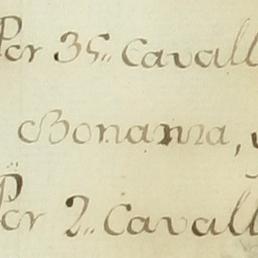 Por 35.. Cavall
Bonanza, y
Por 2.. Cavall